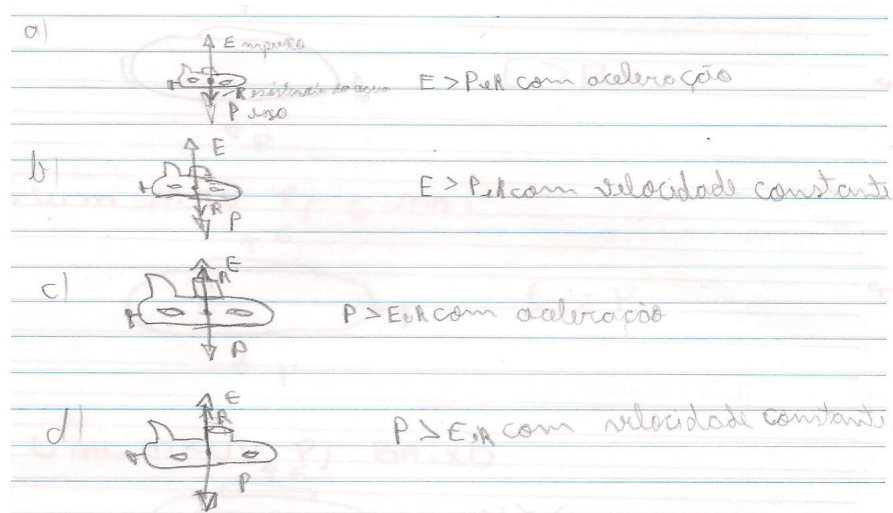 a)
E mpuxo
R esistência da água
P eso
E > P e R com aceleração
b)
E
R
P
E > P e R com velocidade constante
c)
E
R
P
P > E e R com aceleração
d)
E
R
P
P > E e R com velocidade constante